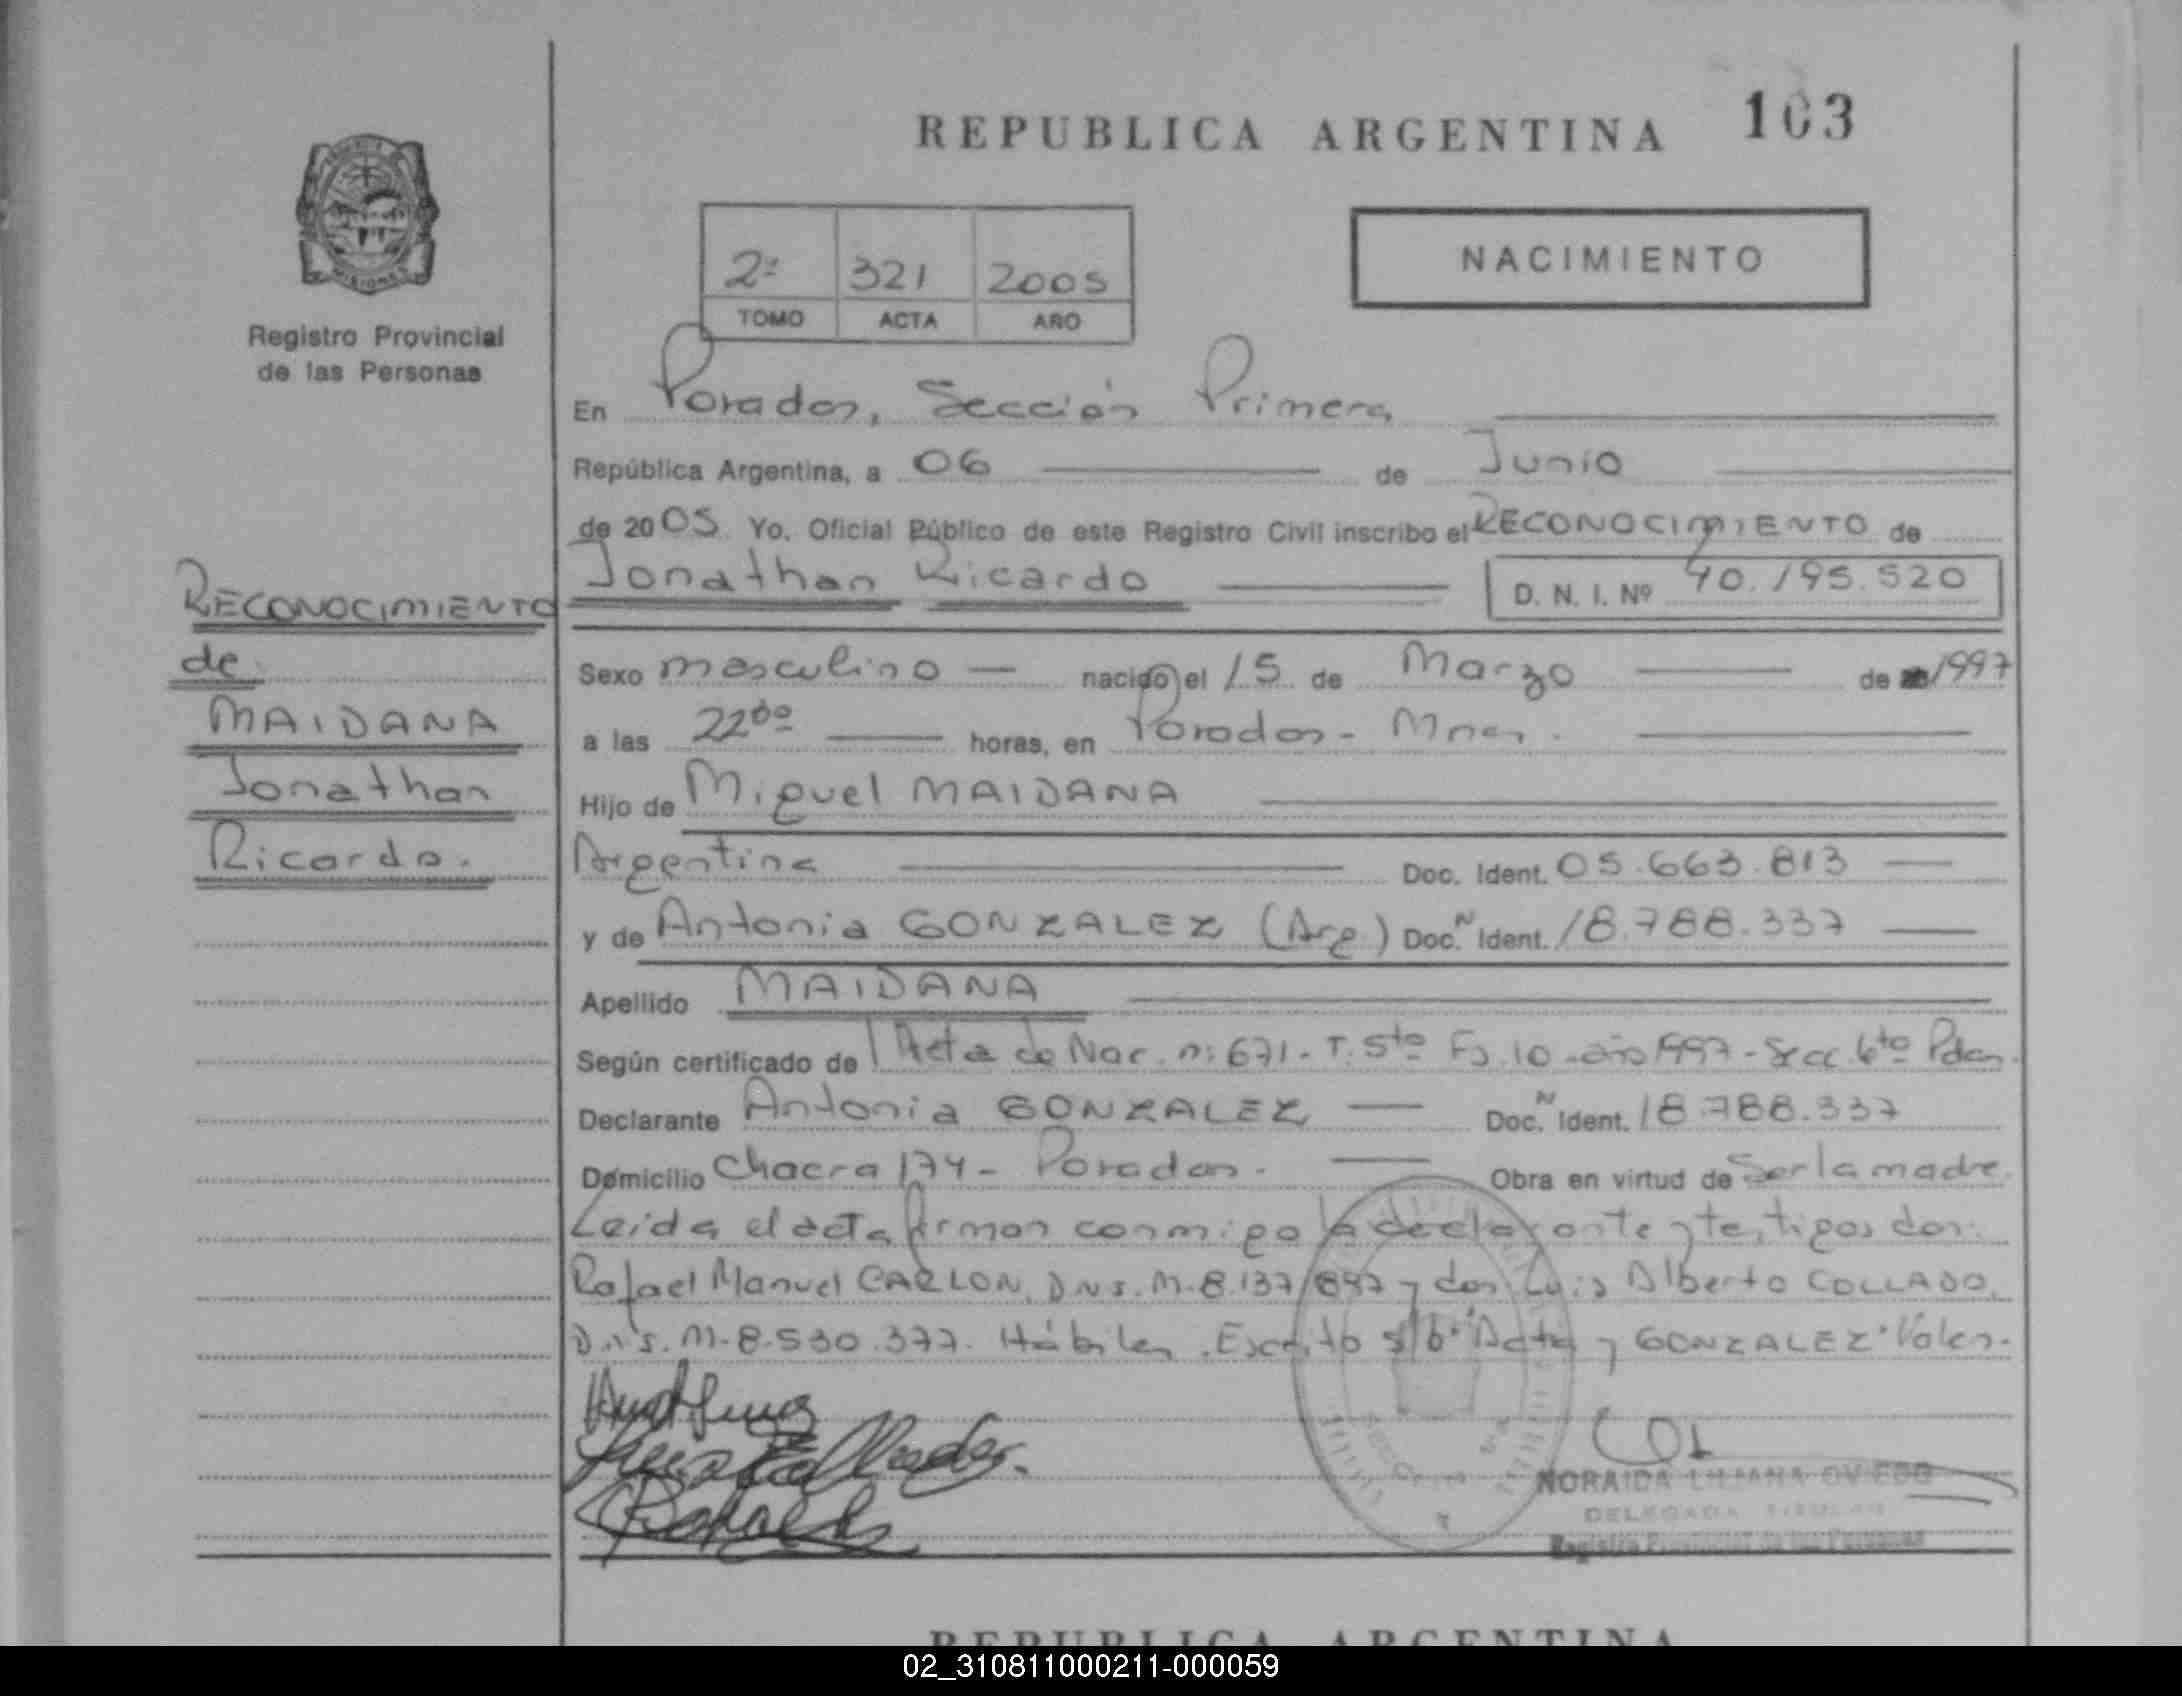 REPUBLICA ARGENTINA 103
MISIONES
Registro Provincial
de las Personas
2º 321 2005
TOMO ACTA AÑO
NACIMIENTO
En Posadas, Sección Primera
República Argentina, a 06 de Junio
de 2005 Yo, Oficial Público de este Registro Civil inscribo el RECONOCIMIENTO de
Jonathan Ricardo D. N. I. Nº 40.195.520
RECONOCIMIENTO
de
MAIDANA
Jonathan
Ricardo.
Sexo masculino nacido el 15 de Marzo de 1997
a las 22⁰⁰ horas, en Posadas - Mnes.
Hijo de Miguel MAIDANA
Argentina Doc. Ident. 05.663.813
y de Antonia GONZALEZ (Arg.) Doc. N Ident. 18.788.337
Apellido MAIDANA
Según certificado de Acta de Nac. nº 671 - T. 5to Fs. 10 - año 1997 - Secc. 6ta Pdas.
Declarante Antonia GONZALEZ Doc. N Ident. 18.788.337
Domicilio Chacra 174 - Posadas. Obra en virtud de Ser la madre.
Leida el acta firman conmigo la declarante y testigos don:
Rafael Manuel CARLON, D.N.I. M-8.137.897 y don Luis Alberto COLLADO,
D.N.I. M-8.530.377. Hábiles. Escrito s/b "Acta y GONZALEZ" Valen.
NORAIDA LILIANA OVIEDO
DELEGADA TITULAR
Registro Provincial de las Personas
REPUBLICA ARGENTINA
02_310811000211-000059